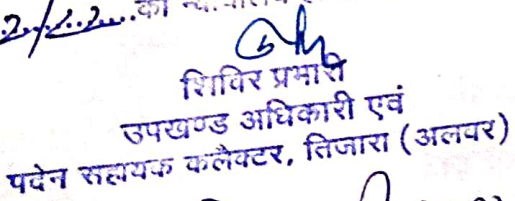 को
शिविर प्रभारी
उपखण्ड अधिकारी एवं
पदेन सहायक कलैक्टर, तिजारा (अलवर)